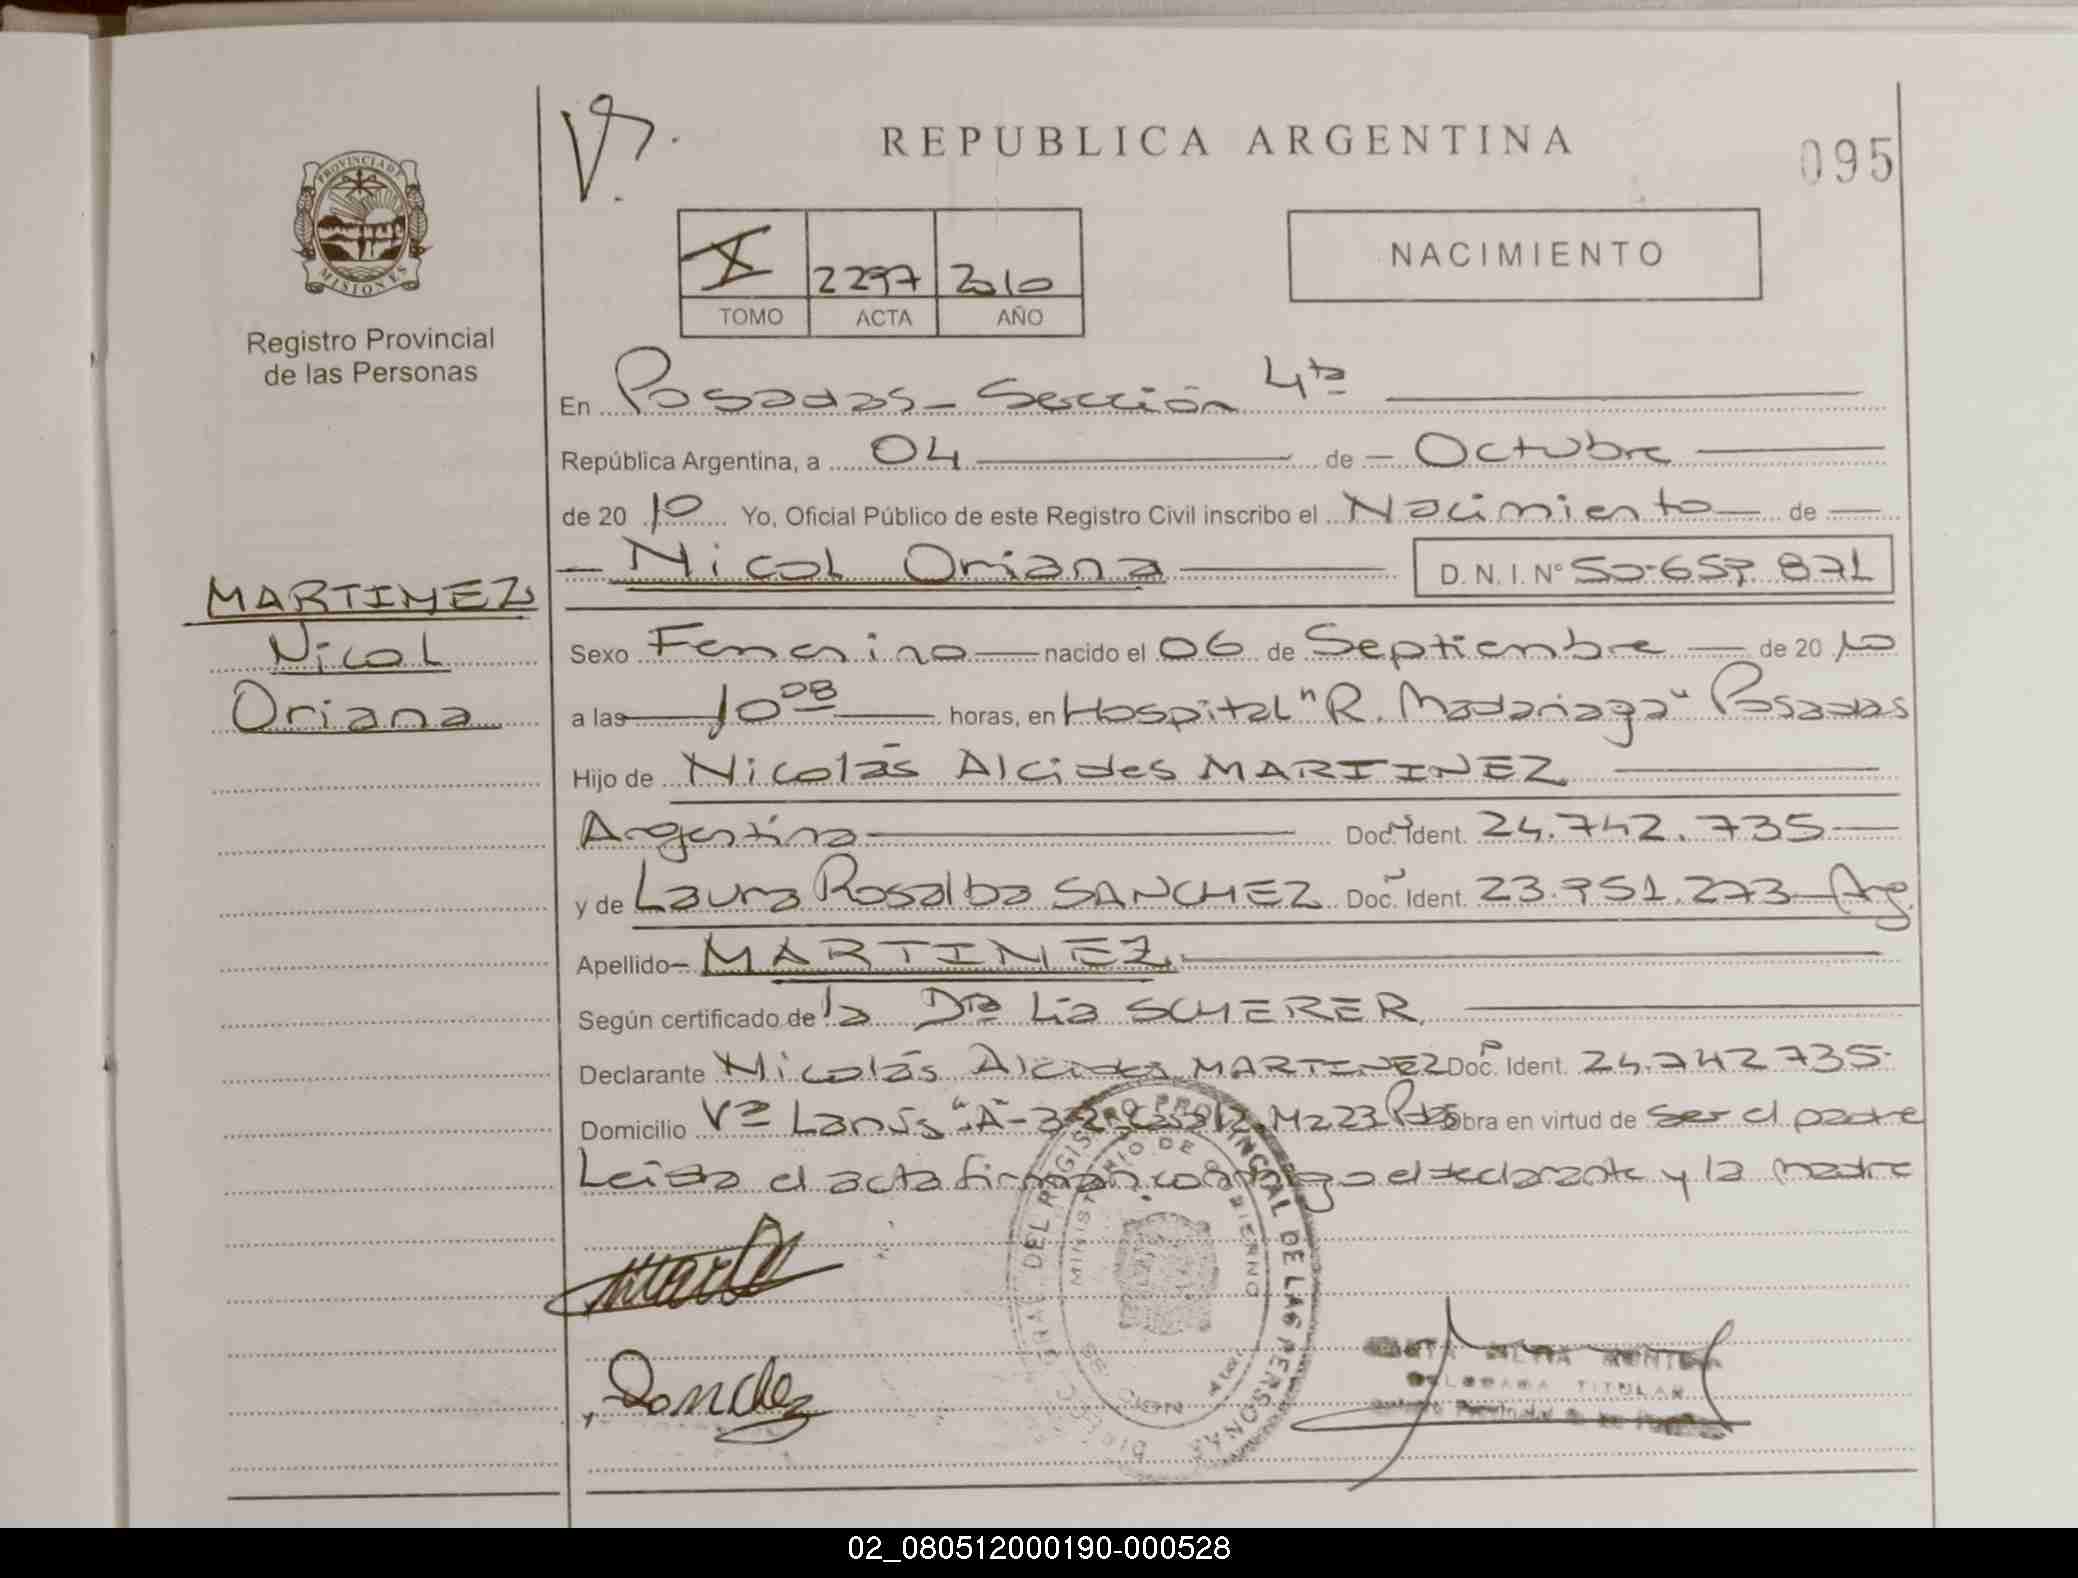 REPUBLICA ARGENTINA
095
PROVINCIA DE MISIONES
Registro Provincial
de las Personas
X 2297 2010
TOMO ACTA AÑO
NACIMIENTO
En Posadas - Sección 4ta
República Argentina, a 04 de - Octubre
de 20 10 Yo, Oficial Público de este Registro Civil inscribo el Nacimiento de
Nicol Oriana D. N. I. Nº 50.657.871
MARTINEZ
Nicol
Oriana
Sexo Femenino nacido el 06 de Septiembre de 20 10
a las 10 08 horas, en Hospital "R. Madariaga" Posadas
Hijo de Nicolás Alcides MARTINEZ
Argentina Doc. Ident. 24.742.735
y de Laura Rosalba SANCHEZ Doc. Ident. 23.951.273 Arg.
Apellido MARTINEZ
Según certificado de la Dra Lia SCHERER
Declarante Nicolás Alcides MARTINEZ Doc. Ident. 24.742.735
Domicilio Vª Lanús "A" - 32 Mz 23 Obra en virtud de ser el padre
Leida el acta firman conmigo el declarante y la madre
DEL REGISTRO PROVINCIAL DE LAS PERSONAS
MINISTERIO DE GOBIERNO
Sanchez
TITULAR
02_080512000190-000528